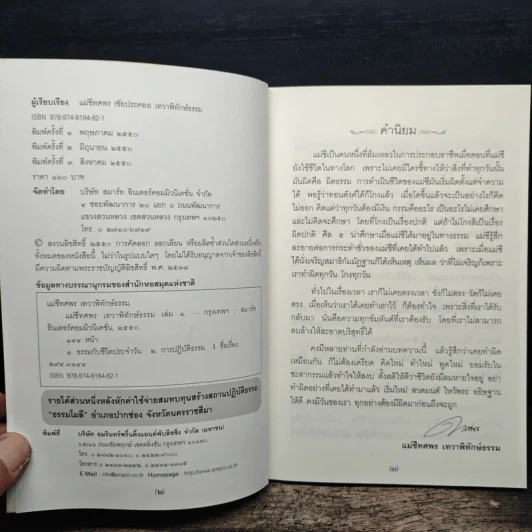 ผู้เรียบเรียง แม่ชีทศพร เชัยประคอง เทวาพิทักษ์ธรรม
ISBN 978-974-6184-82-1
พิมพ์ครั้งที่ ๑ พฤษภาคม ๒๕๕๐
พิมพ์ครั้งที่ ๒ มิถุนายน ๒๕๕๐
พิมพ์ครั้งที่ ๓ สิงหาคม ๒๕๕๐
ราคา ๑๖๐ บาท
จัดทำโดย บริษัท สมาร์ท อินเตอร์คอมมิวนิเคชั่น จำกัด
๔ ซอยพัฒนาการ ๒๐ แยก ๖ ถนนพัฒนาการ
แขวงสวนหลวง เขตสวนหลวง กรุงเทพฯ ๑๐๒๕๐
© สงวนลิขสิทธิ์ ๒๕๕๐ การคัดลอก ลอกเลียน หรือผลิตซ้ำส่วนใดส่วนหนึ่งหรือ
ทั้งหมดของหนังสือนี้ ไม่ว่าในรูปแบบใดๆ โดยไม่ได้รับอนุญาตจากเจ้าของลิขสิทธิ์
มีความผิดตามพระราชบัญญัติลิขสิทธิ์ พ.ศ. ๒๕๓๗
ข้อมูลทางบรรณานุกรมของสำนักหอสมุดแห่งชาติ
แม่ชีทศพร เทวาพิทักษ์ธรรม
แม่ชีทศพร เทวาพิทักษ์ธรรม เล่ม ๑. -- กรุงเทพฯ : สมาร์ท
อินเตอร์คอมมิวนิเคชั่น, ๒๕๕๐.
๑๔๔ หน้า.
๑. ธรรมกับชีวิตประจำวัน. ๒. การปฏิบัติธรรม. I ชื่อเรื่อง.
๒๙๔.๓๑๔๔
ISBN 978-974-6184-82-1
รายได้ส่วนหนึ่งหลังหักค่าใช้จ่ายสมทบทุนสร้างสถานปฏิบัติธรรม
"ธรรมโมลี" อำเภอปากช่อง จังหวัดนครราชสีมา
พิมพ์ที่ บริษัท อมรินทร์พริ้นติ้งแอนด์พับลิชชิ่ง จำกัด (มหาชน)
E-Mail : info@amarin.co.th Homepage : http://www.amarin.co.th
(๒)
คำนิยม
แม่ชีเป็นคนหนึ่งที่ล้มเหลวในการประกอบอาชีพเมื่อตอนที่แม่ชี
ยังใช้ชีวิตในทางโลก เพราะไม่เคยมีใครชี้ทางให้ว่าสิ่งที่ทำทุกวันนั้น
มันผิดศีล ผิดธรรม การดำเนินชีวิตของแม่ชีมันเริ่มผิดตั้งแต่จำความ
ได้ พอรู้ว่าทอนตังค์ได้ก็โกงแล้ว เมื่อโตขึ้นแล้วจะเป็นอย่างไรก็คิด
ไม่ออก คิดแต่ว่าทุกวันต้องมีเงิน กรรมคืออะไร เป็นอะไรไม่เคยศึกษา
และไม่คิดจะศึกษา โดยที่โกงเป็นเรื่องปกติ แต่ถ้าไม่โกงสิเป็นเรื่อง
ผิดปกติ ศีล ๕ น่าศึกษาเมื่อแม่ชีได้มาอยู่ในทางธรรม แม่ชีรู้สึก
ละอายต่อการกระทำชั่วของแม่ชีที่เคยได้ทำไปแล้ว เพราะเมื่อแม่ชี
ได้นั่งเจริญสมาธิกัมมัฏฐานก็ได้เห็นเหตุ เห็นผล ว่าที่ไม่เจริญก็เพราะ
เราทำผิดทุกวัน โกงทุกวัน
ทั่วไปในเรื่องเวลา เราก็ไม่เคยตรงเวลา ชั่งก็ไม่ตรง วัดก็ไม่เคย
ตรง เมื่อเห็นว่าเราได้เคยทำเอาไว้ ก็ต้องทำใจ เพราะสิ่งที่เราได้รับ
กลับมา นั่นคือความทุกข์มหันต์ที่เราต้องรับ โดยที่เราไม่สามารถ
ลบล้างให้สะอาดบริสุทธิ์ได้
คงมีหลายท่านที่กำลังอ่านบทความนี้ แล้วรู้สึกว่าเคยทำผิด
เหมือนกัน ก็ไม่ต้องเครียด คิดใหม่ ทำใหม่ พูดใหม่ ยอมรับใน
ชะตากรรมแล้วทำใจให้สงบ ตั้งสติให้ดีชีวิตยังมีลมหายใจอยู่ อย่า
ทำผิดอย่างที่เคยได้ทำมาแล้ว เริ่มใหม่ สวดมนต์ ไหว้พระ อธิษฐาน
ให้ดี คงมีวันของเรา ทุกอย่างต้องมีผิดมาก่อนถึงจะถูก
แม่ชีทศพร เทวาพิทักษ์ธรรม
(๓)